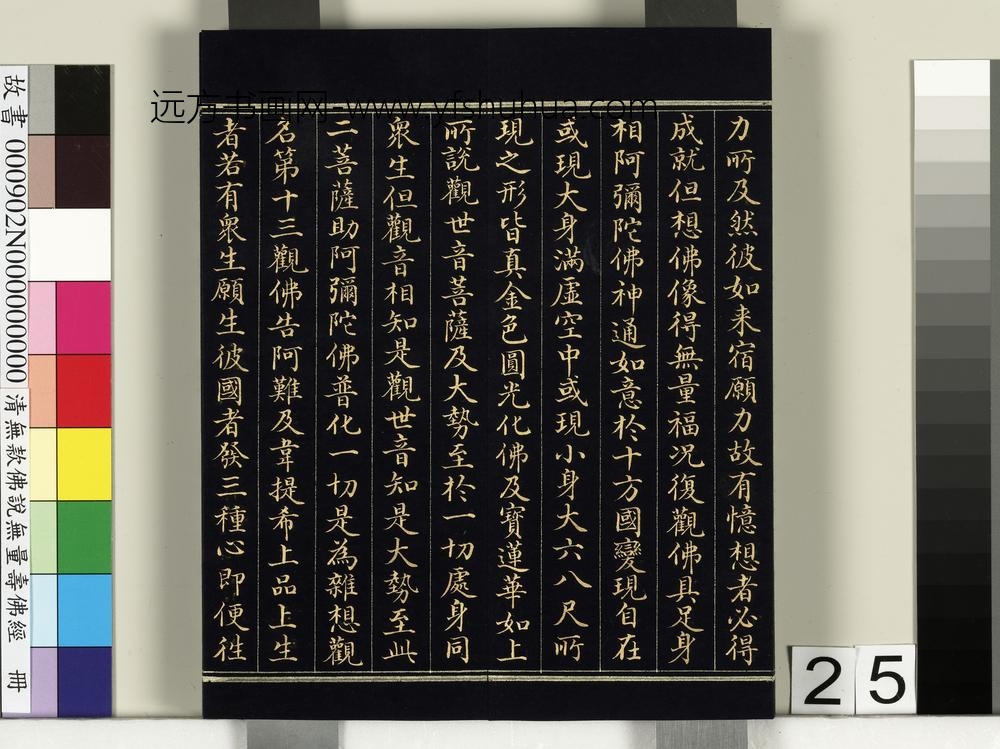 力所及然彼如来宿願力故有憶想者必得
成就但想佛像得無量福况復觀佛具足身
相阿彌陀佛神通如意於十方國變現自在
或現大身滿虛空中或現小身大六八尺所
現之形皆真金色圓光化佛及寶蓮華如上
所說觀世音菩薩及大勢至於一切處身同
衆生但觀音相知是觀世音知是大勢至此
二菩薩助阿彌陀佛普化一切是為雜想觀
名第十三觀佛告阿難及韋提希上品上生
者若有衆生願生彼國者發三種心即便徃
远方书画网-www.yfshuhua.com
故書 000902N000000000
清無款佛說無量壽佛經 冊
25